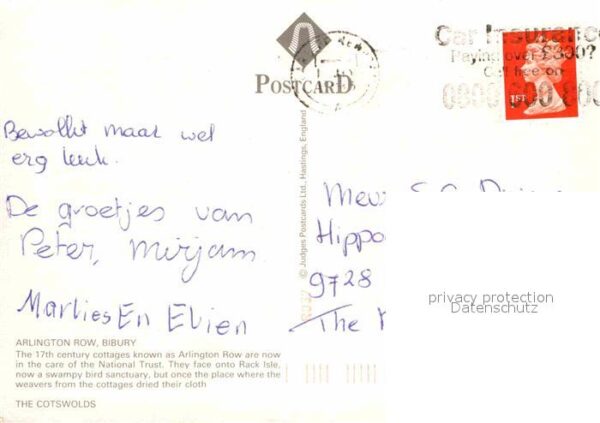 Car Insurance
Paying over £300?
Call free on
0800 600 800
POSTCARD
1ST
Bewolkt maar wel
erg leuk.
De groetjes van
Peter, Mirjam
Marlies En Elien
© Judges Postcards Ltd., Hastings, England
Mev
Hippo
9728
The
privacy protection
Datenschutz
ARLINGTON ROW, BIBURY
The 17th century cottages known as Arlington Row are now
in the care of the National Trust. They face onto Rack Isle,
now a swampy bird sanctuary, but once the place where the
weavers from the cottages dried their cloth
THE COTSWOLDS